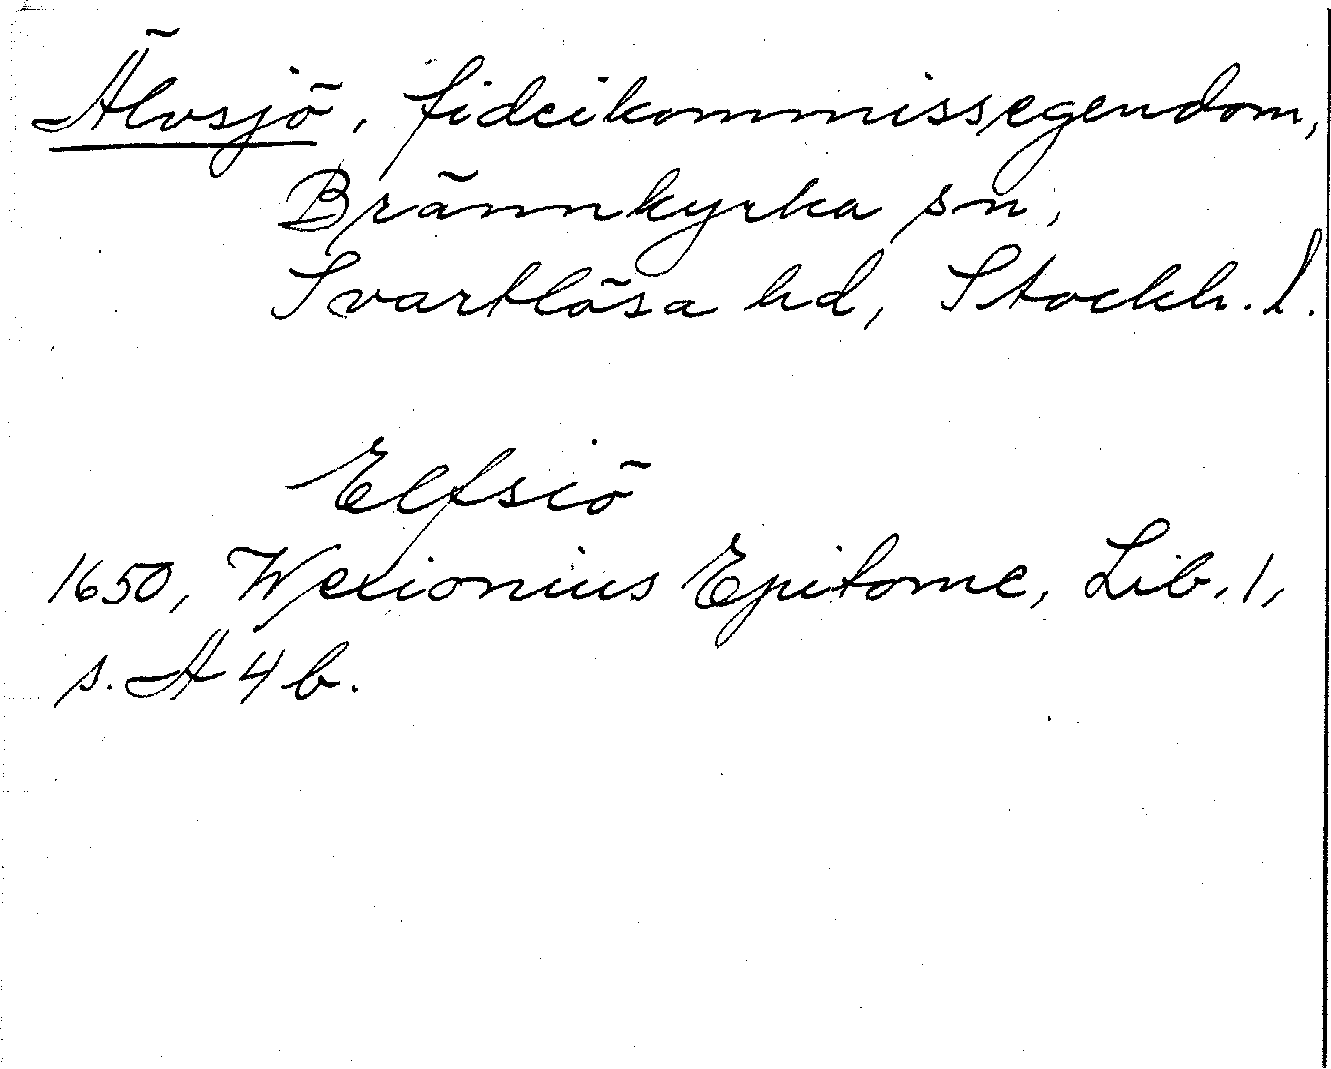 Älvsjö, fideikommissegendom,
Brännkyrka sn,
Svartlösa hd, Stockh. l.
Elfsiö
1650, Wexionius Epitome, Lib. 1,
s. A 4 b.